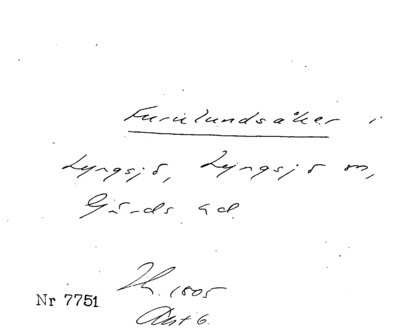 Furulundsåker i
Lyngsjö, Lyngsjö sn,
Gärds hd.
Nr 7751
1805
Akt 6.